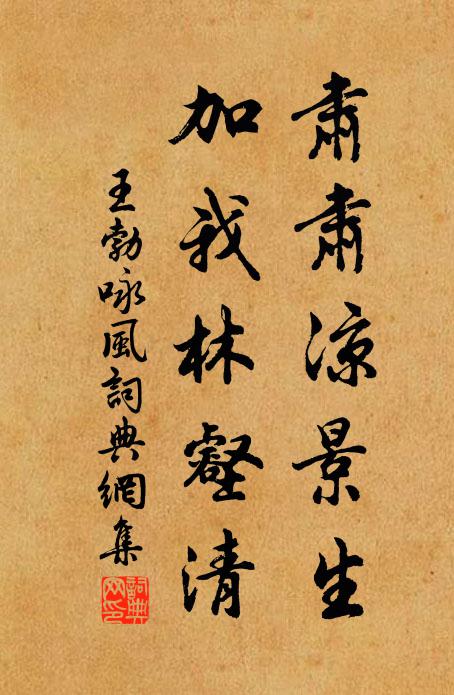 肅肅涼景生
加我林壑清
王勃咏風詞典網集
詞典網印